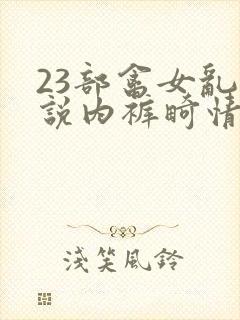 23部畜女亂
說内裤畸情
淺笑風鈴